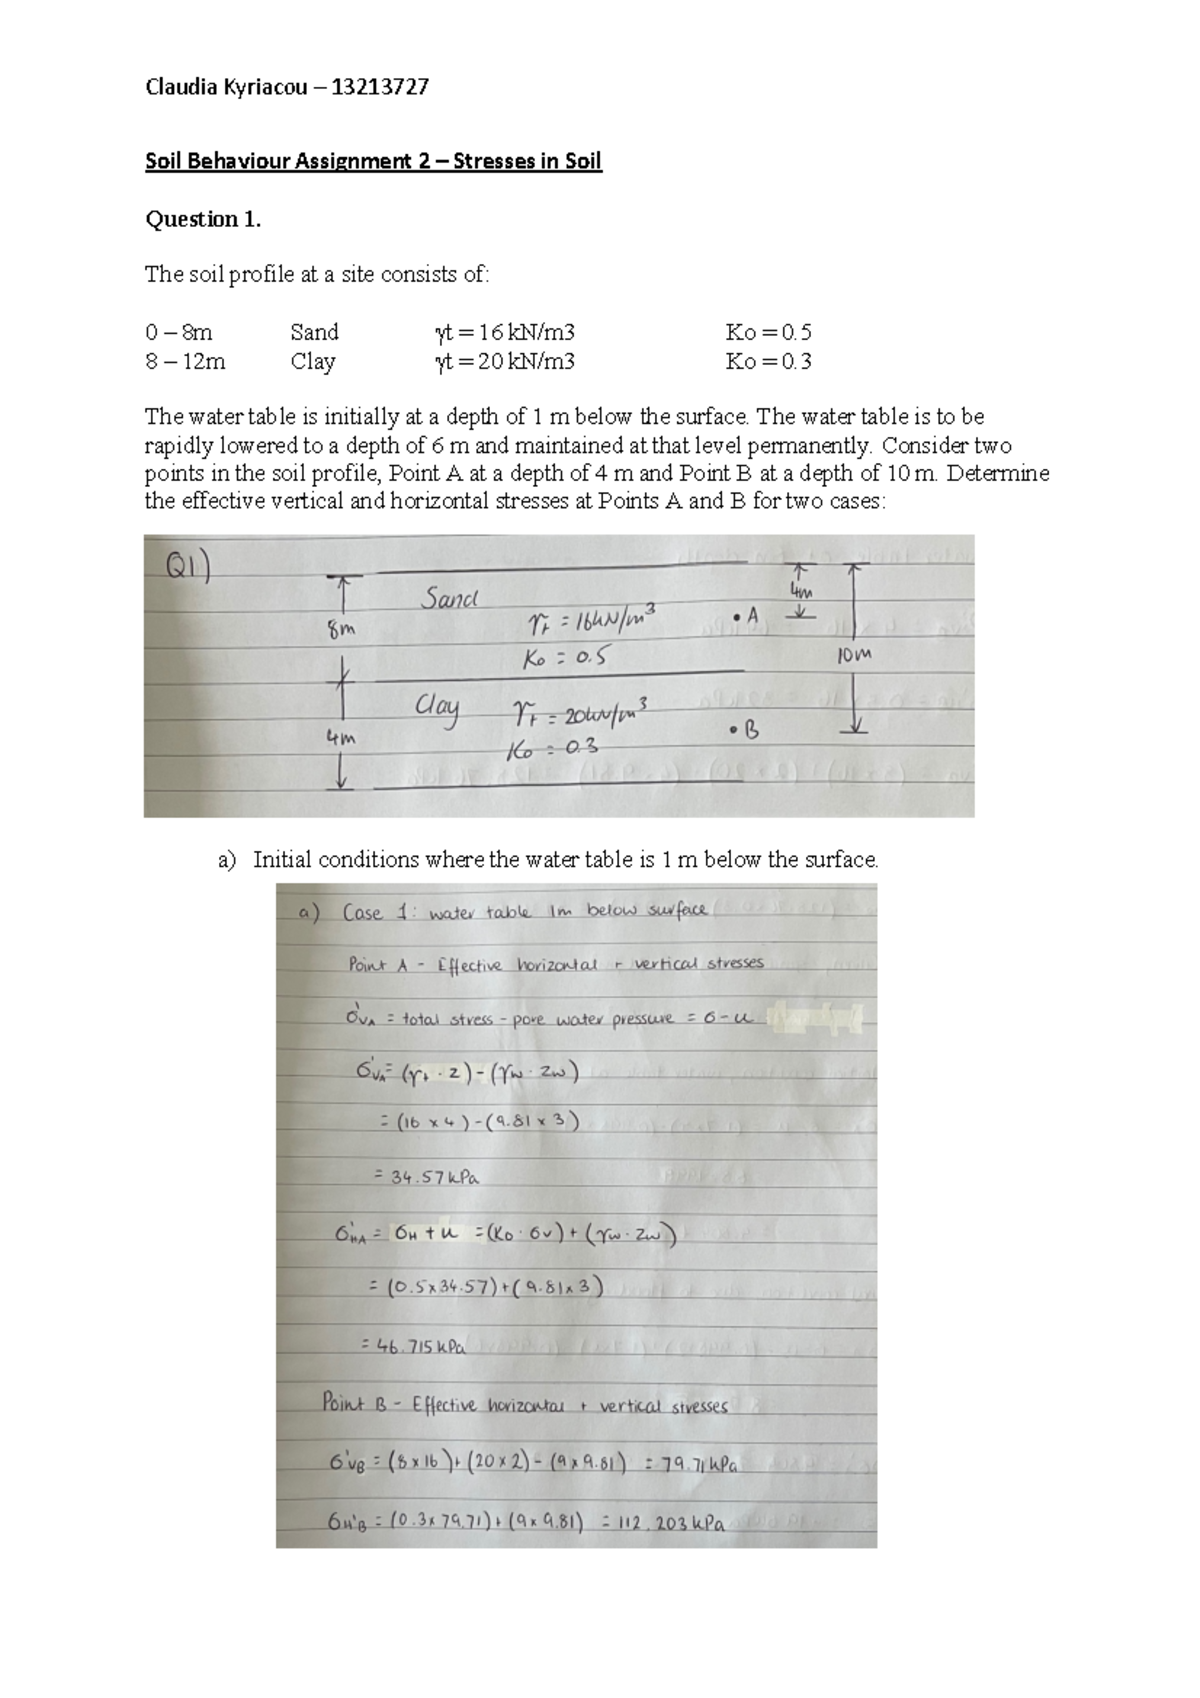 Claudia Kyriacou – 13213727
Soil Behaviour Assignment 2 – Stresses in Soil
Question 1.
The soil profile at a site consists of:
0 – 8m Sand γt = 16 kN/m3 Ko = 0.5
8 – 12m Clay γt = 20 kN/m3 Ko = 0.3
The water table is initially at a depth of 1 m below the surface. The water table is to be
rapidly lowered to a depth of 6 m and maintained at that level permanently. Consider two
points in the soil profile, Point A at a depth of 4 m and Point B at a depth of 10 m. Determine
the effective vertical and horizontal stresses at Points A and B for two cases:
Q1)
Sand
4m
8m
γt = 16kN/m³
• A
Ko = 0.5
10m
Clay
γt = 20kN/m³
• B
4m
Ko = 0.3
a) Initial conditions where the water table is 1 m below the surface.
a) Case 1: water table 1m below surface
Point A - Effective horizontal + vertical stresses
σ'VA = total stress - pore water pressure = σ - u
σ'VA = (γt · z) - (γw · zw)
= (16 x 4) - (9.81 x 3)
= 34.57 kPa
σ'HA = σH + u = (Ko · σv) + (γw · zw)
= (0.5 x 34.57) + (9.81 x 3)
= 46.715 kPa
Point B - Effective horizontal + vertical stresses
σ'VB = (8 x 16) + (20 x 2) - (9 x 9.81) = 79.71 kPa
σH'B = (0.3 x 79.71) + (9 x 9.81) = 112.203 kPa